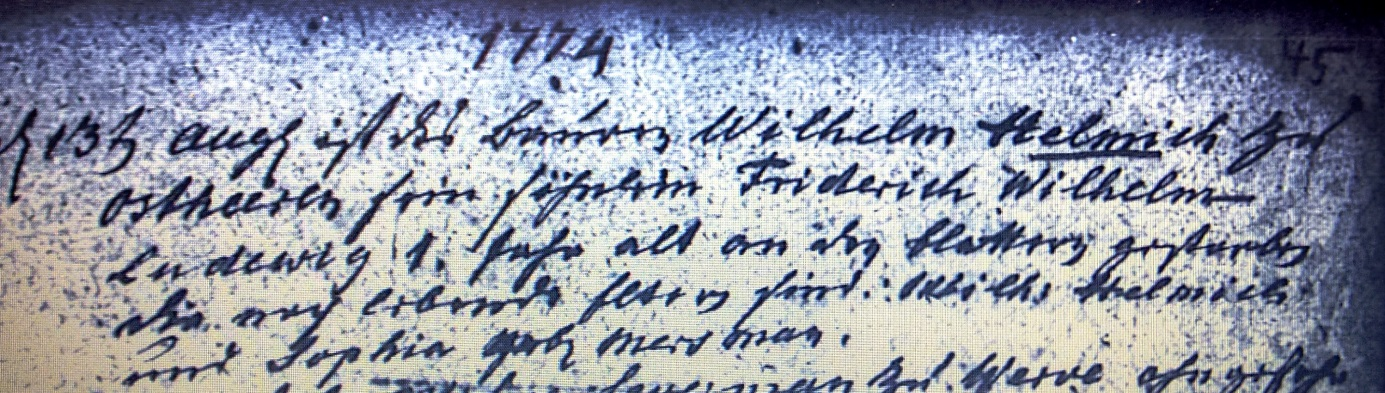 1774
45
13t Aug ist des Bauren Wilhelm Helmich zu
Ostheeren sein söhnlein Friderich Wilhelm
Ludewig 1. Jahr alt an den blattern gestorben
die noch lebende Eltern sind: Wilh: Helmich
und Sophia geb. Mersman.
zu Werve